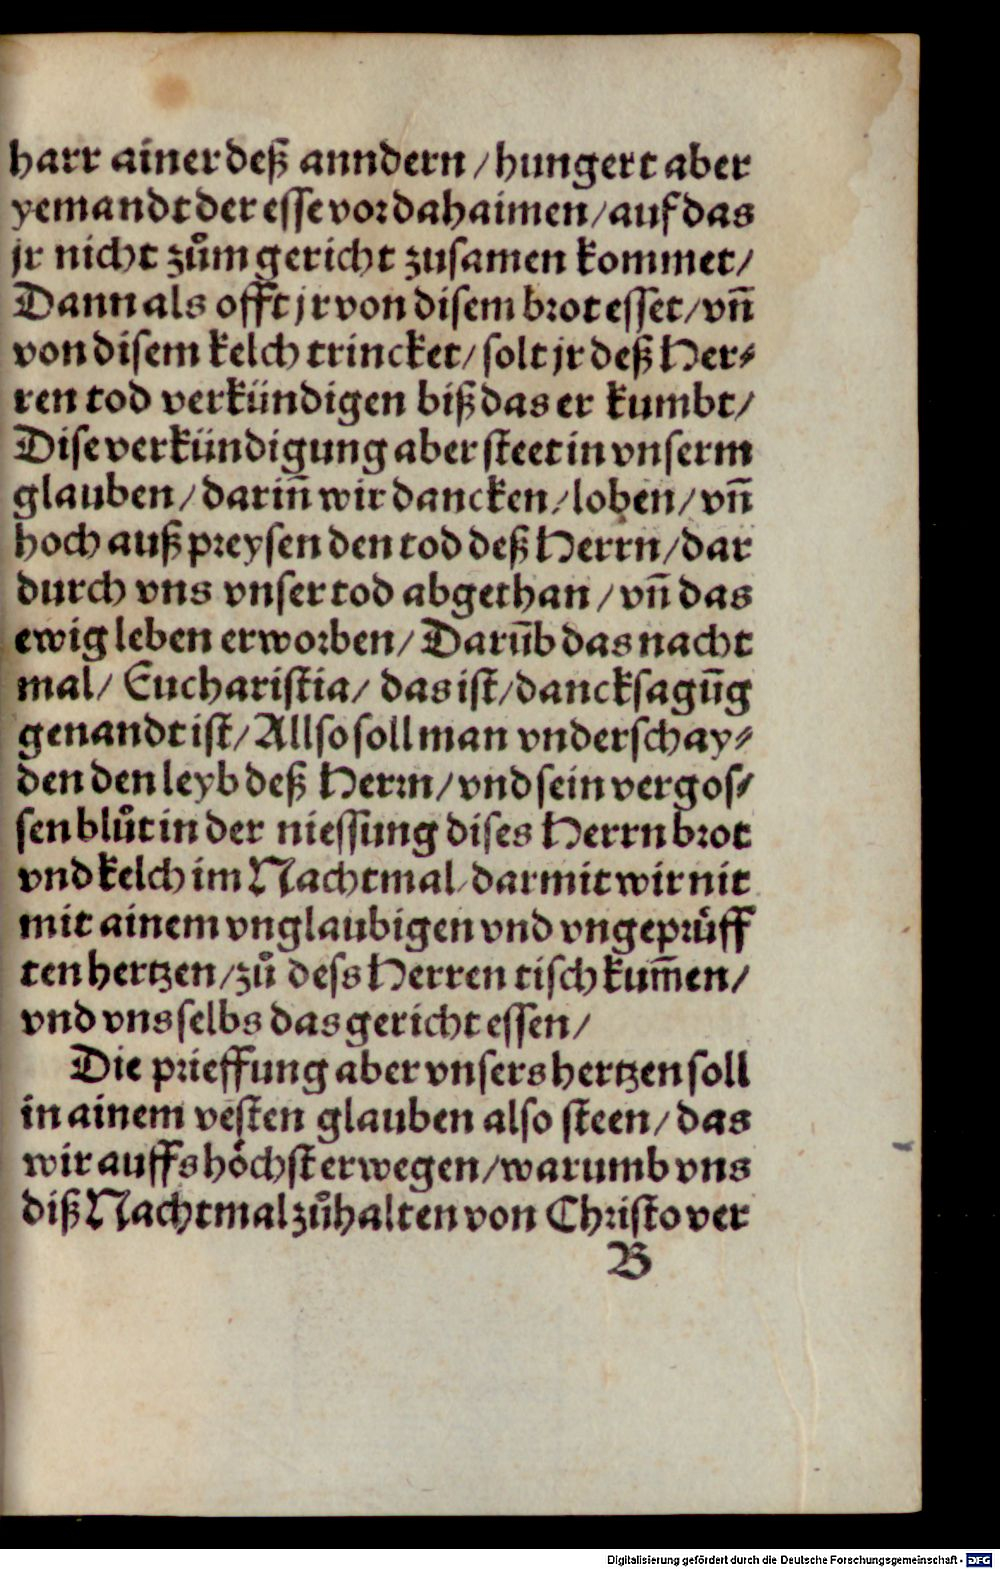 harr ainer deß anndern / hungert aber
yemandt der esse vor dahaimen / auf das
jr nicht zům gericht zusamen kommet /
Dann als offt jr von disem brot esset / vn̄
von disem kelch trincket / solt jr deß Her⸗
ren tod verkündigen biß das er kumbt /
Dise verkündigung aber steet in vnserm
glauben / darin̄ wir dancken / loben / vn̄
hoch auß preysen den tod deß Herrn / dar
durch vns vnser tod abgethan / vn̄ das
ewig leben erworben / Darūb das nacht
mal / Eucharistia / das ist / dancksagūg
genandt ist / Allso soll man vnderschay⸗
den den leyb deß Herrn / vnd sein vergos⸗
sen blůt in der niessung dises Herrn brot
vnd kelch im Nachtmal / darmit wir nit
mit ainem vnglaubigen vnd vngeprůff
ten hertzen / zů dess Herren tisch kum̄en /
vnd vns selbs das gericht essen /
Die prieffung aber vnsers hertzen soll
in ainem vesten glauben also steen / das
wir auffs höchst erwegen / warumb vns
diß Nachtmal zůhalten von Christo ver
B
Digitalisierung gefördert durch die Deutsche Forschungsgemeinschaft - DFG